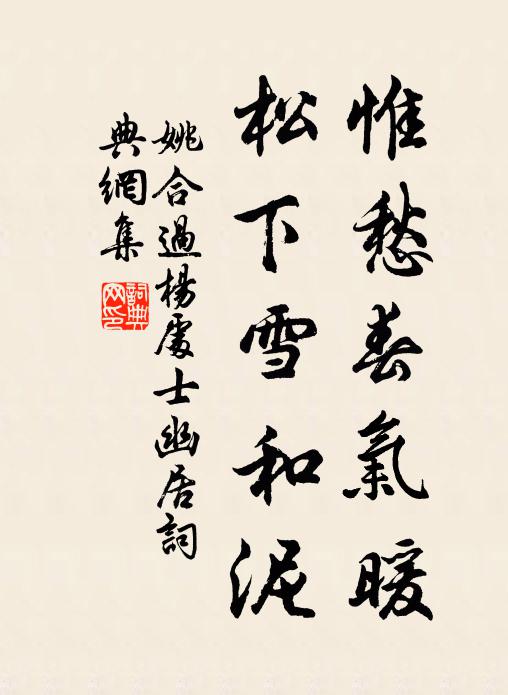 惟愁春氣暖
松下雪和泥
姚合過楊處士幽居詞
典網集
詞典網印